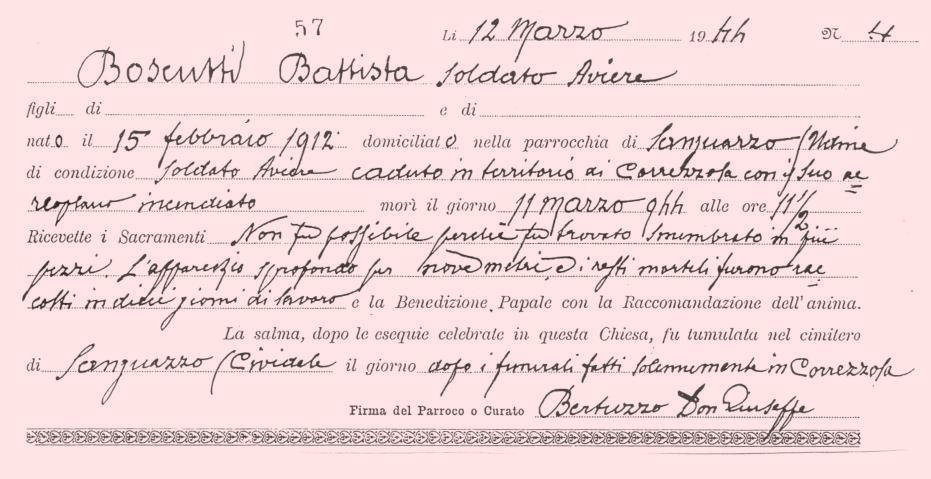 57
Li 12 Marzo 1944 N. 4
Boscutti Battista Soldato Aviere
figli di e di
nato il 15 febbraio 1912 domiciliato nella parrocchia di Sanguarzo (Udine
di condizione Soldato Aviere caduto in territorio di Correzzola con il suo ae
reoplano incendiato morì il giorno 11 Marzo 944 alle ore 11 1/2
Ricevette i Sacramenti Non fu possibile perchè fu trovato smembrato in più
pezzi. L'apparecchio sprofondò per nove metri e i resti mortali furono rac
colti in dieci giorni di lavoro e la Benedizione Papale con la Raccomandazione dell'anima.
La salma, dopo le esequie celebrate in questa Chiesa, fu tumulata nel cimitero
di Sanguarzo (Cividale il giorno dopo i funerali fatti solennemente in Correzzola
Firma del Parroco o Curato Bertuzzo Don Giuseppe